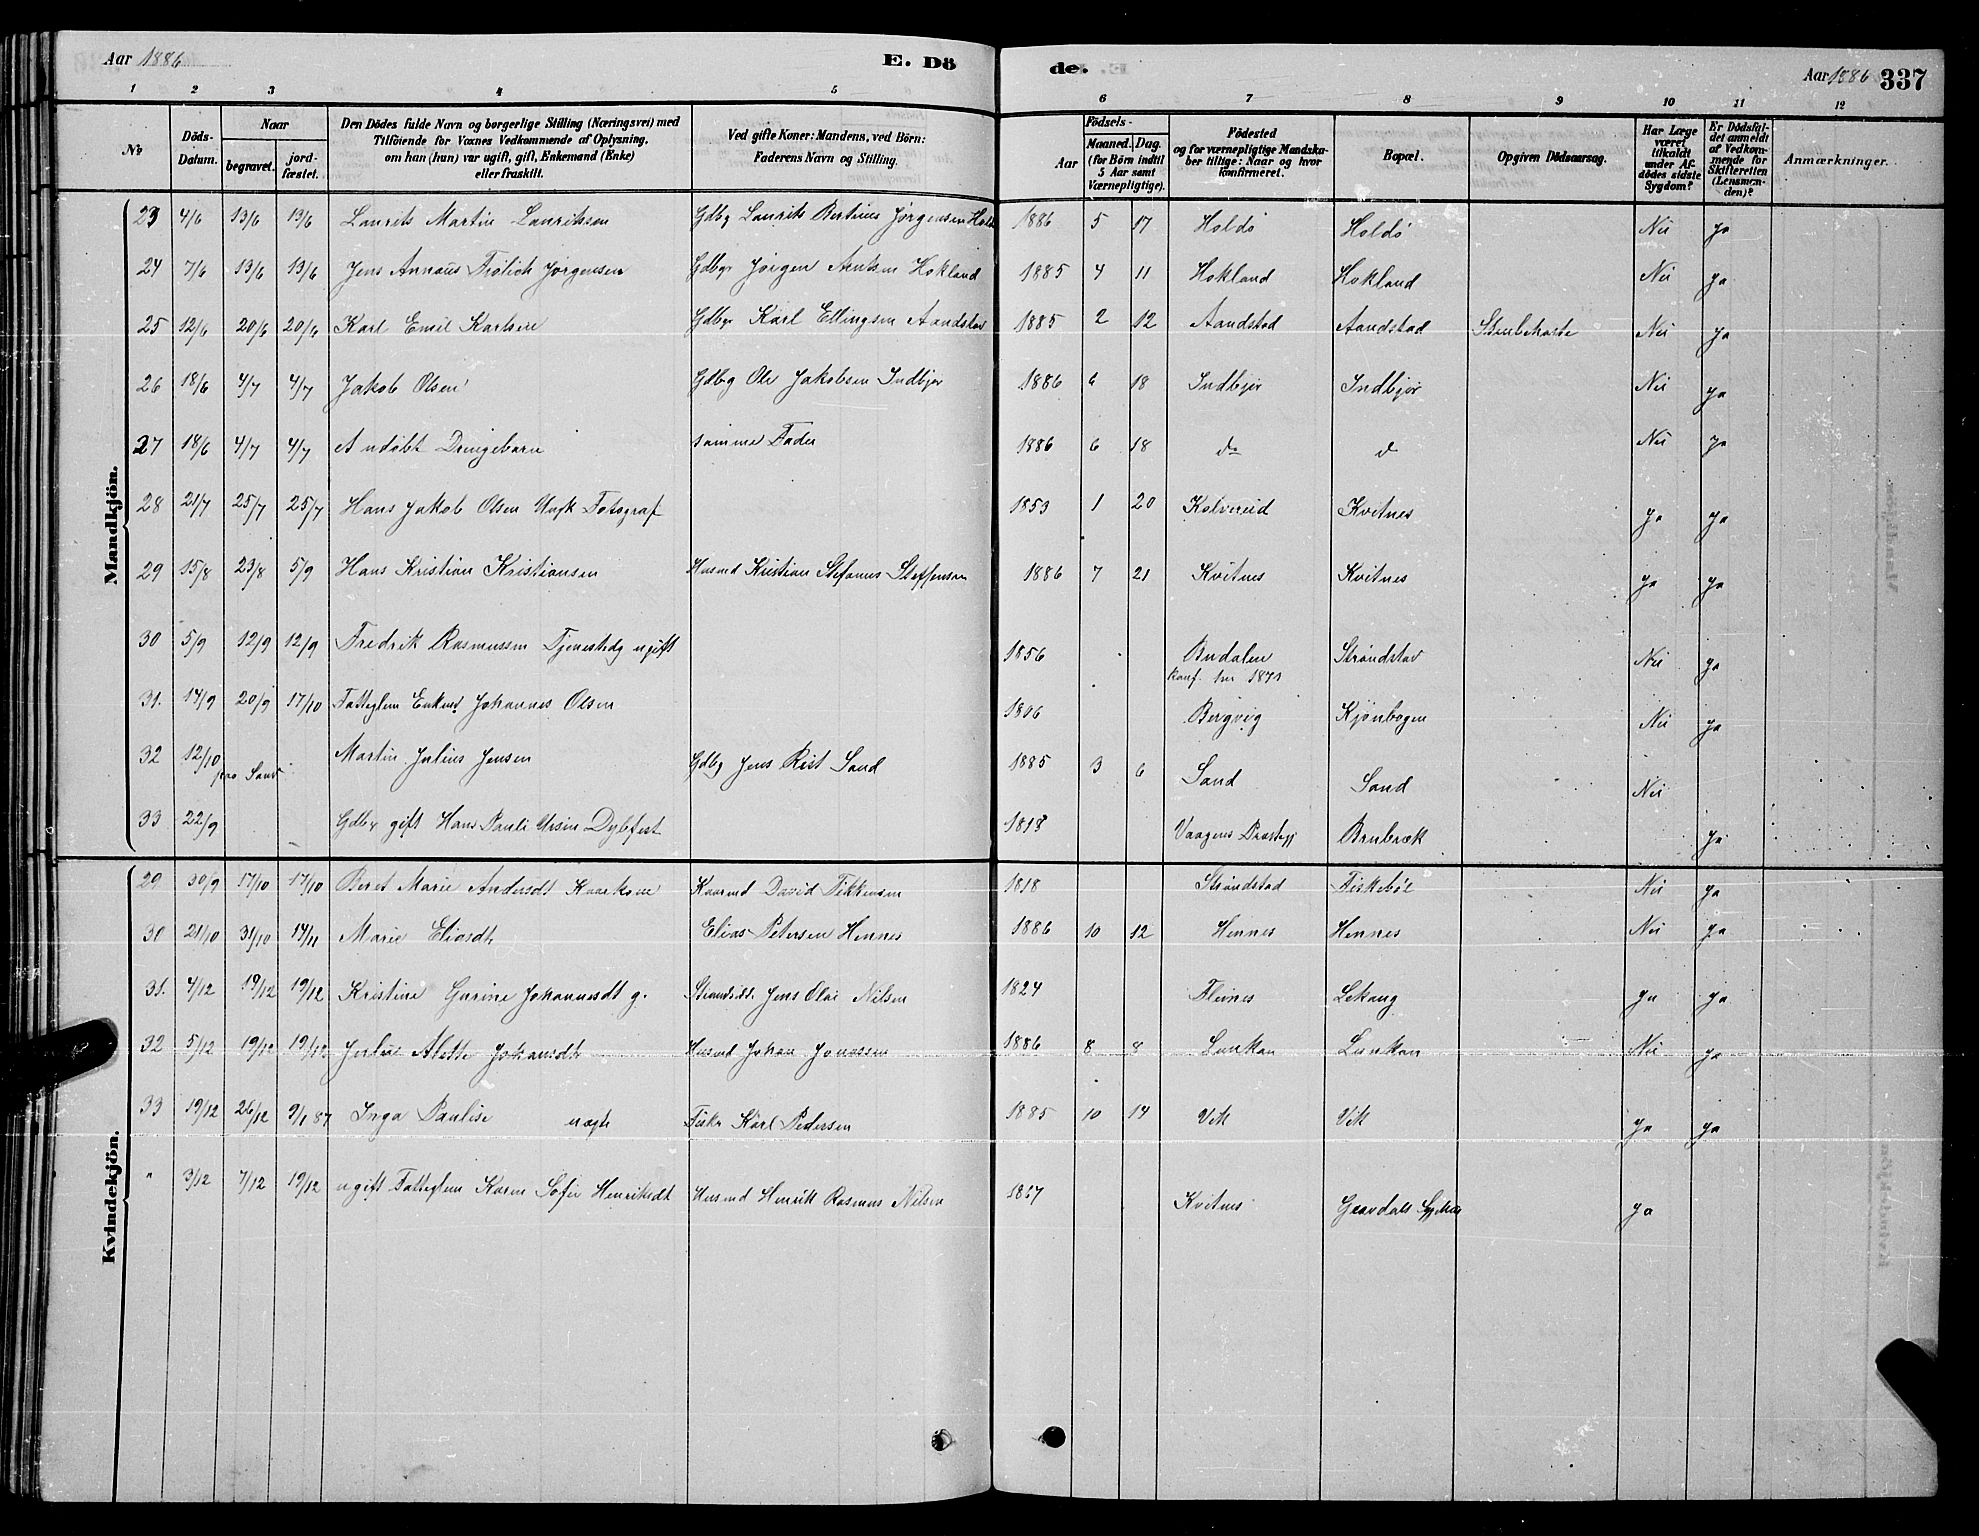 Aar 1886 E. Dö de. Aar 1886 337
1 2 3 4 5 6 7 8 9 10 11 12
No.
Döds-Datum.
Naar
begravet.
jord-fæstet.
Den Dödes fulde Navn og borgerlige Stilling (Næringsvei) med
Tilföiende for Voxnes Vedkommende af Oplysning,
om han (hun) var ugift, gift, Enkemand (Enke)
eller fraskilt.
Ved gifte Koner: Mandens, ved Börn:
Faderens Navn og Stilling.
Födsels-
Aar
Maaned. Dag.
(for Börn indtil
5 Aar samt
Værnepligtige).
Födested
og for værnepligtige Mandska-
ber tillige: Naar og hvor
konfirmeret.
Bopæl.
Opgiven Dödsaarsag.
Har Læge
været
tilkaldt
under Af-
dödes sidste
Sygdom?
Er Dödsfal-
det anmeldt
af Vedkom-
mende for
Skifteretten
(Lensman-
den)?
Anmærkninger.
Mandkjön.
23 4/6 13/6 13/6 Laurits Martin Lauritsen Gdbg Laurits Bertinus Jørgensen Holdø 1886 5 17 Holdö Holdö Nei ja
24 7/6 13/6 13/6 Jens Annæus Frölich Jørgensen Gdbgr Jørgen Arntsen Hokland 1885 4 11 Hokland Hokland Nei ja
25 12/6 20/6 20/6 Karl Emil Karlsen Gdbgr Karl Ellingsen Aandstad 1885 2 12 Aandstad Aandstad Nei ja
26 18/6 4/7 4/7 Jakob Olsen Gdbg Ole Jakobsen Indbjor 1886 6 18 Indbjor Indbjor Nei ja
27 18/6 4/7 4/7 Et udøbt Drengebarn samme Fader 1886 6 18 do d Nei ja
28 21/7 25/7 25/7 Hans Jakob Olsen Ungk Fotograf 1853 1 20 Kolvereid Kvitnes ja ja
29 15/8 23/8 5/9 Hans Kristian Kristiansen Husmd Kristian Stefanus Steffensen 1886 7 21 Kvitnes Kvitnes ja ja
30 5/9 12/9 12/9 Fredrik Rasmussen Tjenestedg ugift 1856 Budalen Strandstad Nei ja
Konf. her 1871
31. 14/9 20/9 17/10 Fattiglem Enkemd Johannes Olsen 1806 Bergvig Kjønbogen Nei ja
32 12/10 paa Sand Martin Julius Jensen Gdbg Jens Rist Sand 1885 3 6 Sand Sand Nei
33 22/9 Gdbr gift Hans Pauli Ursin Dybfest 1818 Vaagens Præstegj Brubræk ja
Kvindekjön.
29 30/9 17/10 17/10 Beret Marie Andersdt Kaarkone Kaarmd David Fikkensen 1818 Strandstad Fiskebøl Nei ja
30 21/10 31/10 14/11 Marie Eliasdt Elias Petersen Hennes 1886 10 12 Hennes Hennes Nei ja
31. 4/12 19/12 19/12 Kristine Gurine Johannesdt g. Strandsidt. Jens Olai Nilsen 1824 Fleines Lekang ja ja
32 5/12 19/12 19/12 Juline Alette Johansdt Husmd Johan Jonassen 1886 8 8 Lunkan Lunkan Nei ja
33 19/12 26/12 9/1 87 Inga Pauline uægte Fiskr Karl Pedersen 1885 10 14 Vik Vik ja ja
" 3/12 7/12 19/12 ugift Fattiglem Karen Sofie Henriksdt Husmd Henrik Rasmus Nilsen 1867 Kvitnes ja